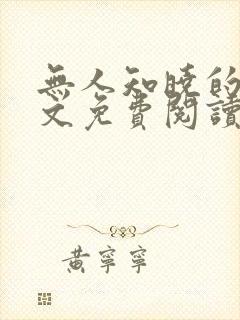 無人知曉的
文免費閱讀
黃寧寧